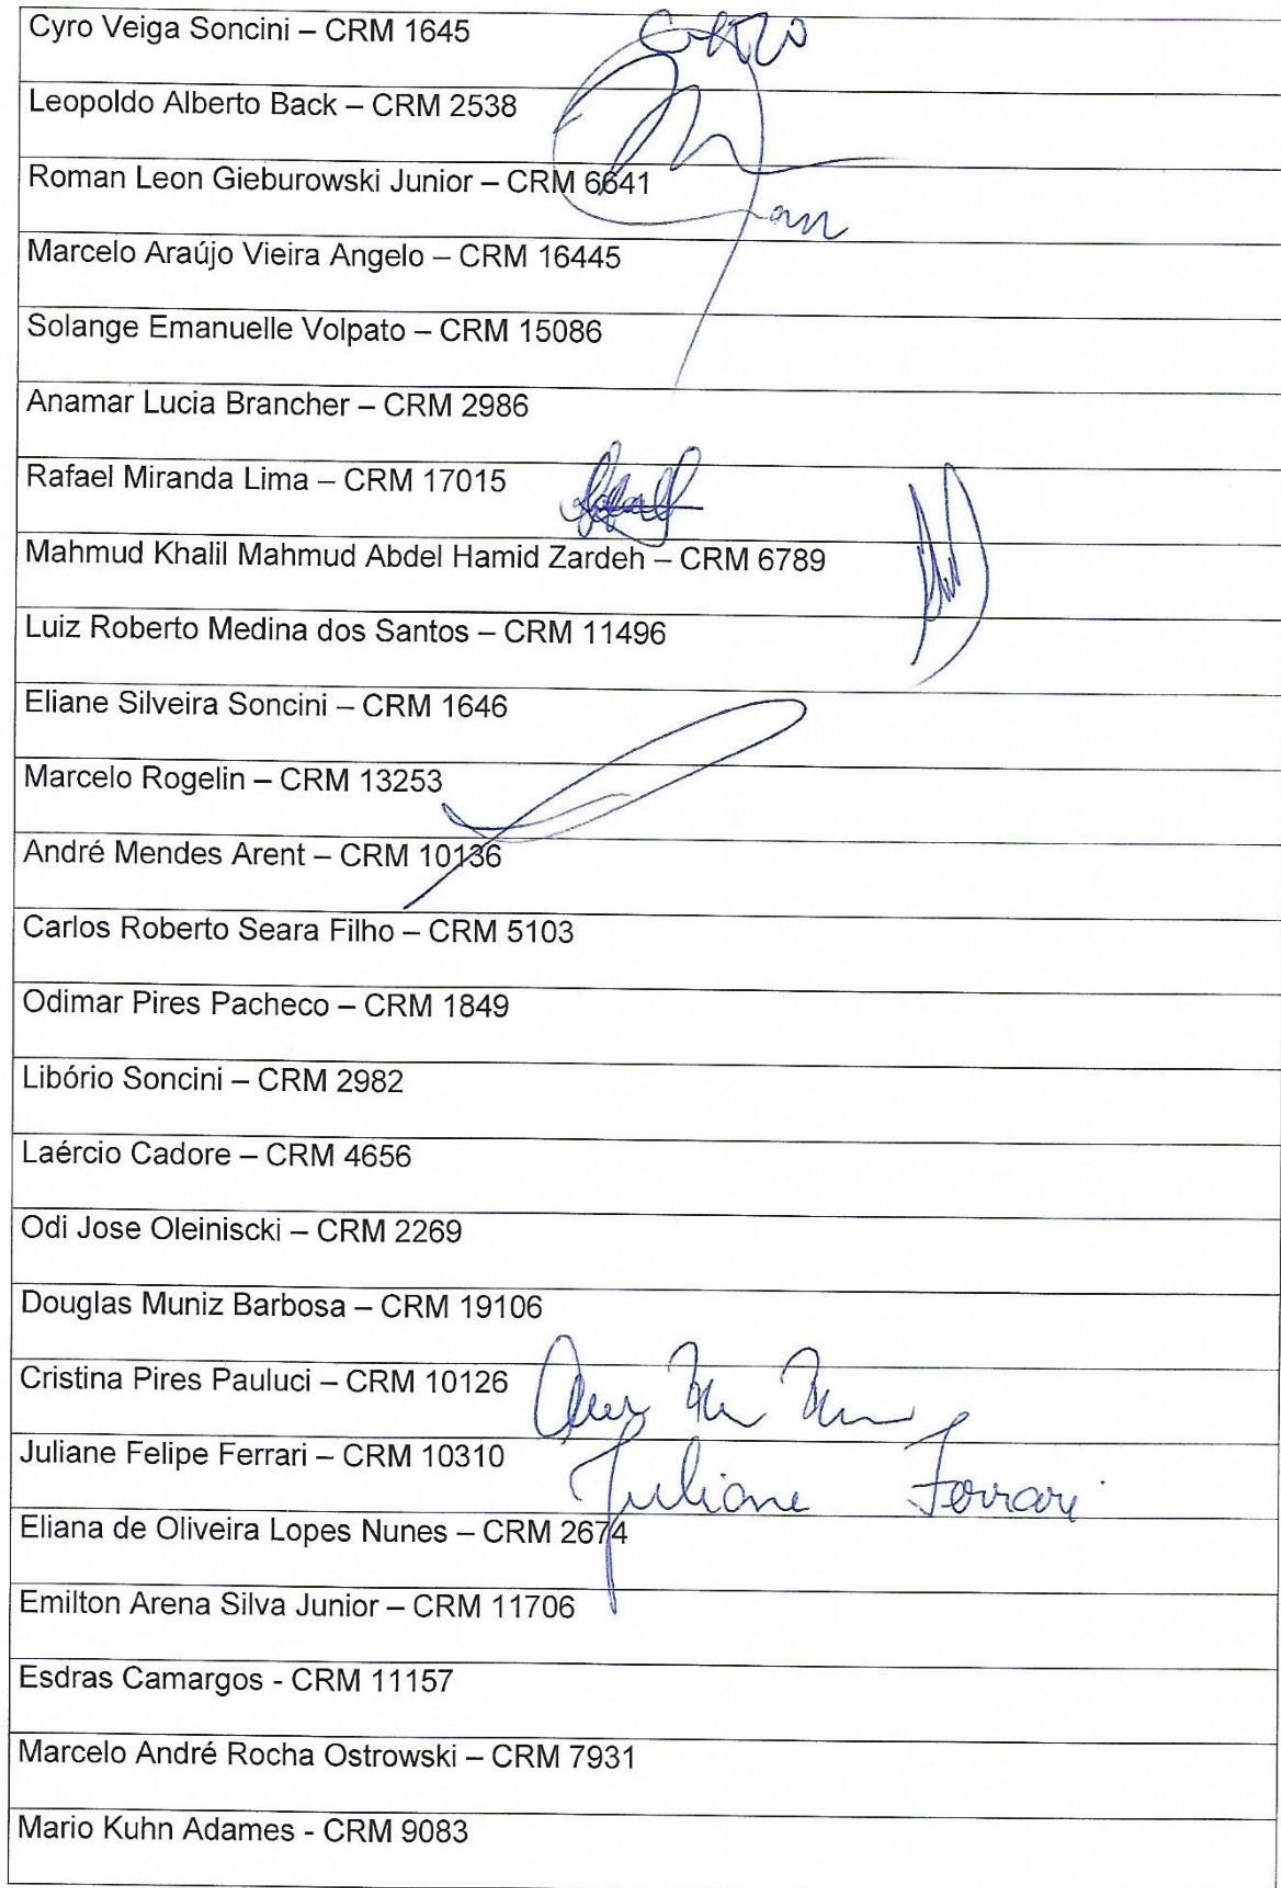 Cyro Veiga Soncini – CRM 1645
Leopoldo Alberto Back – CRM 2538
Roman Leon Gieburowski Junior – CRM 6641
Marcelo Araújo Vieira Angelo – CRM 16445
Solange Emanuelle Volpato – CRM 15086
Anamar Lucia Brancher – CRM 2986
Rafael Miranda Lima – CRM 17015
Mahmud Khalil Mahmud Abdel Hamid Zardeh – CRM 6789
Luiz Roberto Medina dos Santos – CRM 11496
Eliane Silveira Soncini – CRM 1646
Marcelo Rogelin – CRM 13253
André Mendes Arent – CRM 10136
Carlos Roberto Seara Filho – CRM 5103
Odimar Pires Pacheco – CRM 1849
Libório Soncini – CRM 2982
Laércio Cadore – CRM 4656
Odi Jose Oleiniscki – CRM 2269
Douglas Muniz Barbosa – CRM 19106
Cristina Pires Pauluci – CRM 10126
Juliane Felipe Ferrari – CRM 10310 Juliane Ferrari
Eliana de Oliveira Lopes Nunes – CRM 2674
Emilton Arena Silva Junior – CRM 11706
Esdras Camargos - CRM 11157
Marcelo André Rocha Ostrowski – CRM 7931
Mario Kuhn Adames - CRM 9083